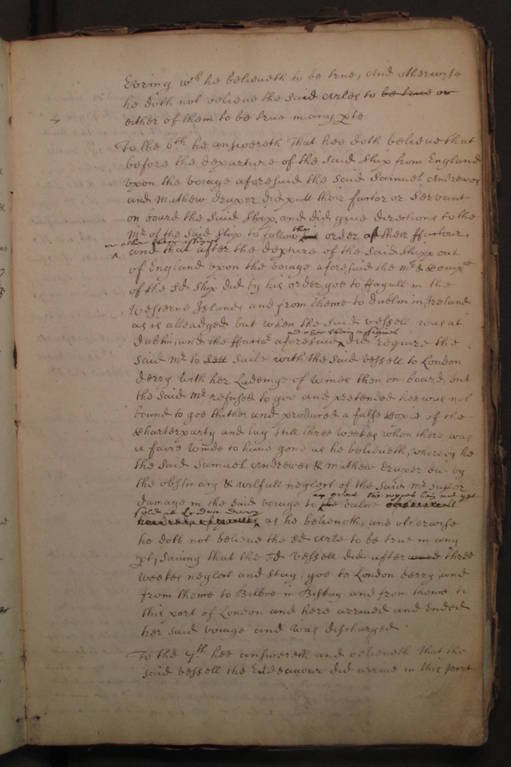 seeing wch he beleeveth to be true, and otherwise
he doth not beleeve the said arles to be true or
either of them to be true in any pte
To the 6th he answereth That hee doth beleeve that
before the departure of the said ship from England
upon the voiage aforesaid the said Samuel Andrewes
and Mathew draper did putt their factor or servant
on board the said ship, and did give directions to the
Mr of the said ship to follow the order of their ffactour,
or other theire assignes
and that after the depture of the said shipp out
of England upon the voiage aforesaid the Mr & Compa
of the sd ship did by his order goe to ffayall in the
Westerne Islands and from thence to dublin in Ireland
as is alleadged but when the said vessell was at
dublin, and the ffactor aforesaid did require the
said Mr to sett saile with the said vessell to London
derry with her Ladeinge of wines then on board, but
the said Mr refused to goe and pretended hee was not
bound to goe thither and produced a false Copie of the
Charterparty and lay still three weekes when there was
a faire winde to have gone as he beleeveth, whereby he
the said Samuel Andrewes & Mathew Draper
the obstinacy & wilfull neglect of the said Mr suffer
dammage in the said voiage to
sold at London derry
as he beleeveth, and otherwise
he doth not beleeve the sd arle to be true in any
pt, saving that the sd vessell did after three
weekes neglect and stay, goe to London derry, and
from thence to Bilbao in Biskay and from thence to
this port of London and here arrived and ended
her said voiage and was discharged
To the 7th hee answereth and beleeveth that the
said vessell the Endeavour did arrive in this port